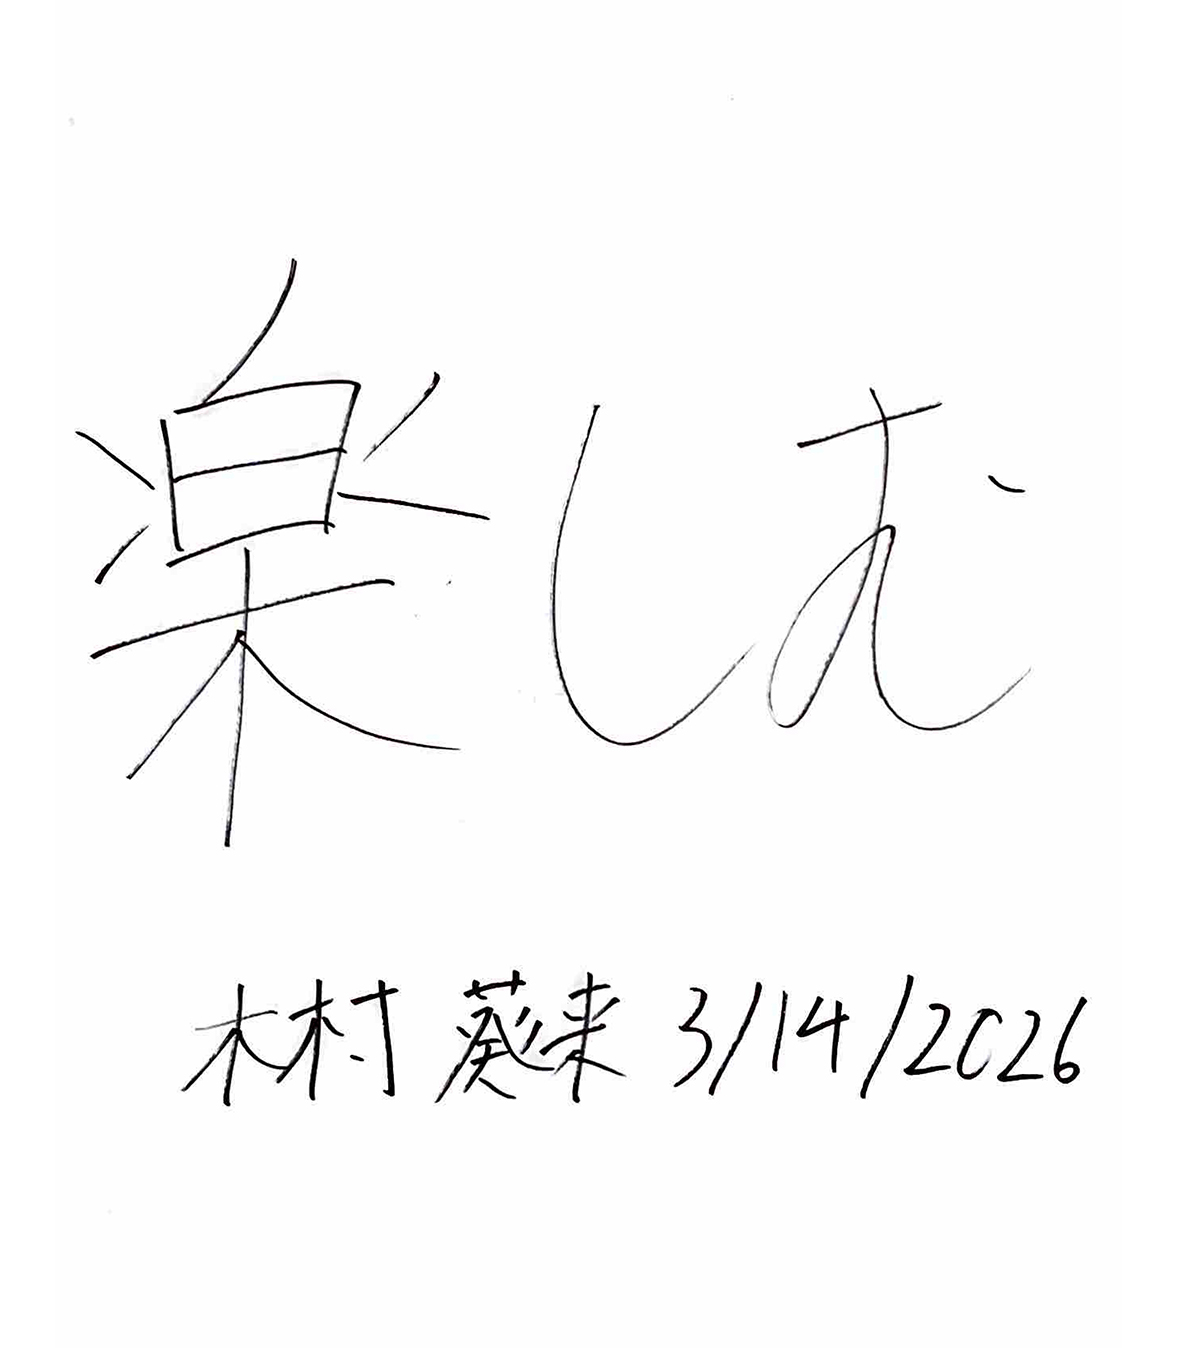 楽しむ
木村 葵来 3/14/2026